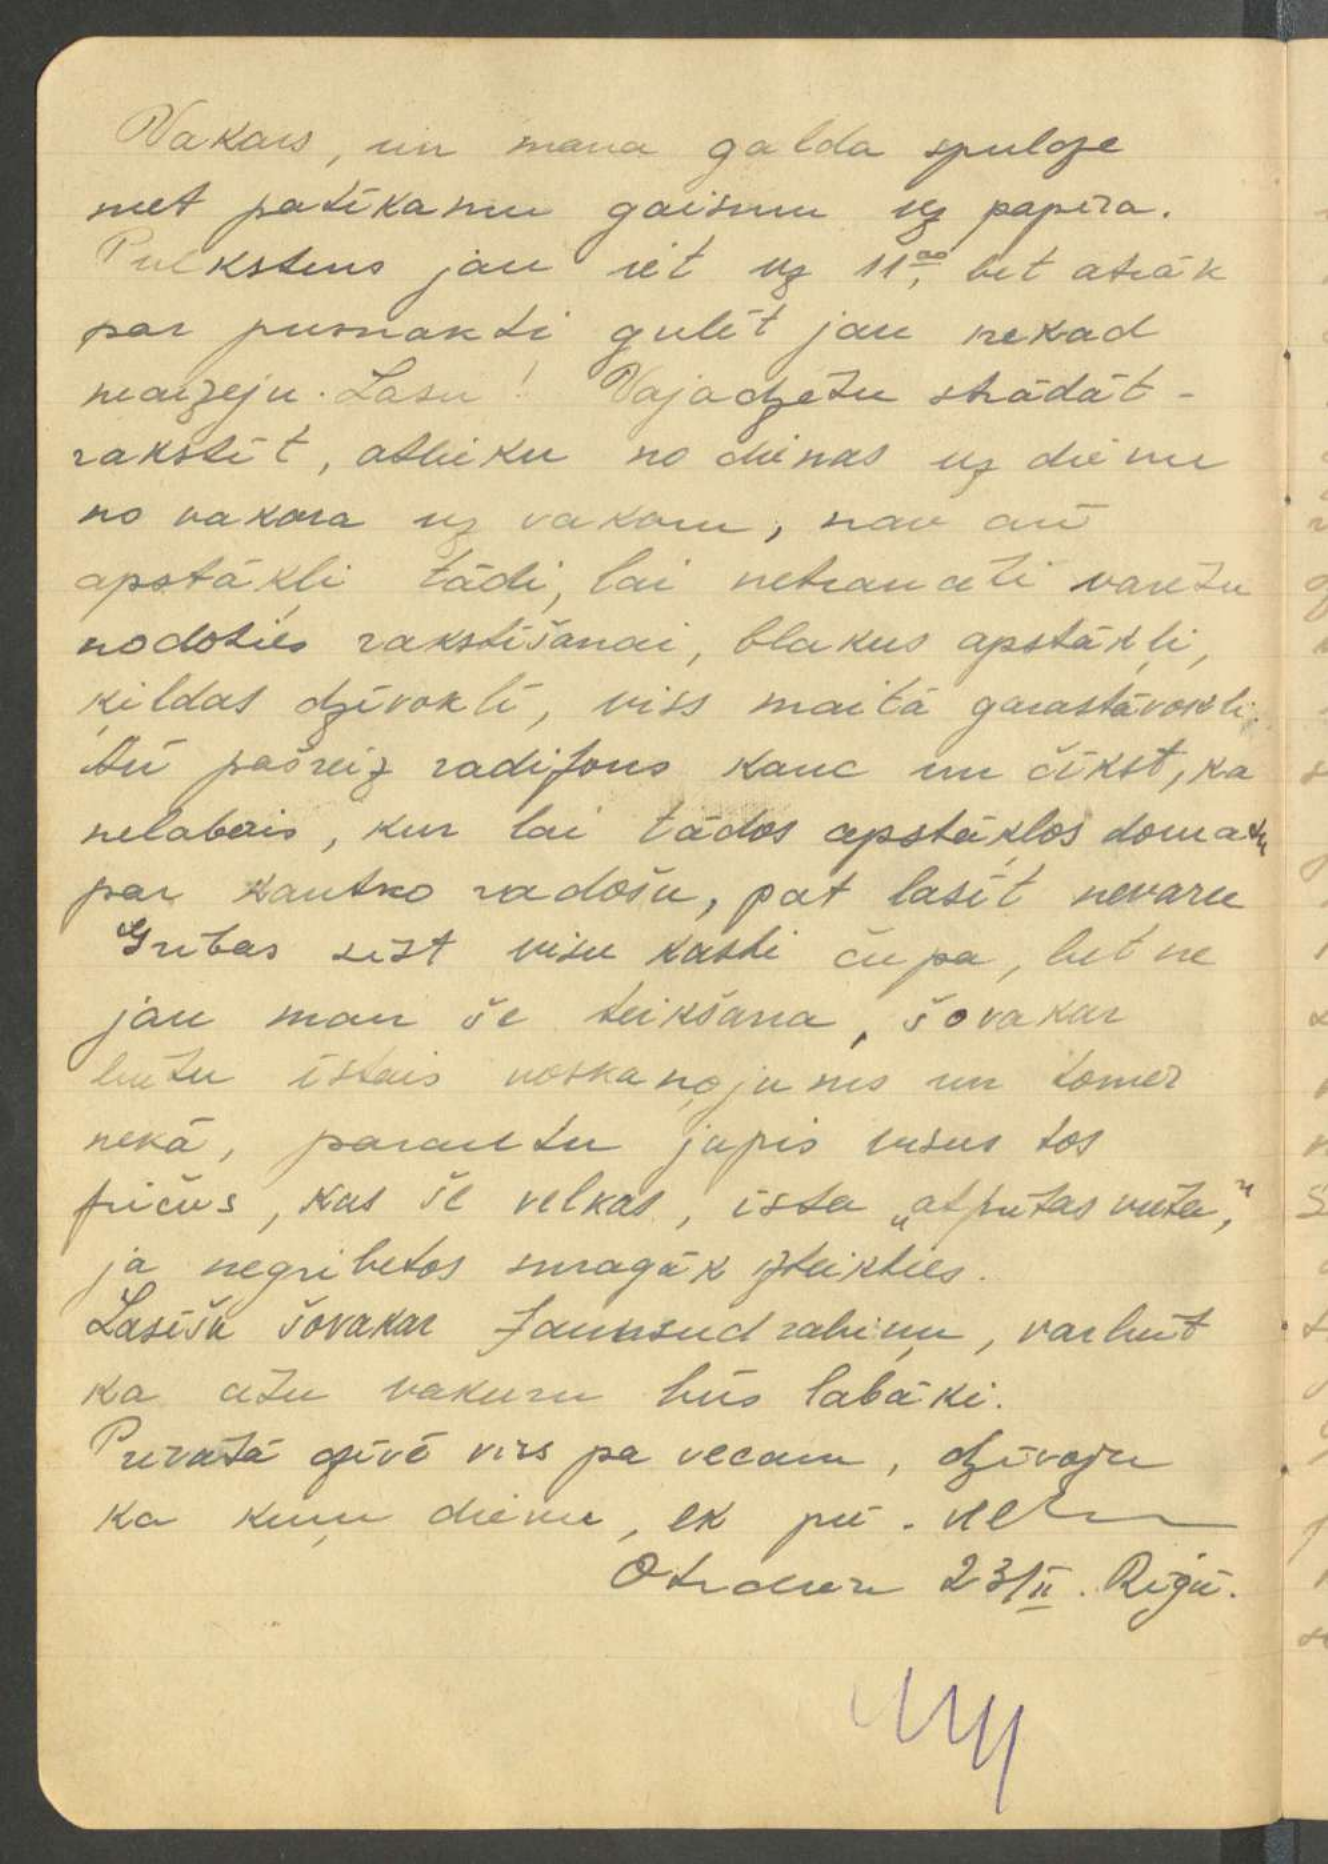 Vakars, un mana galda spuldze
met patīkamu gaismu uz papīra.
Pulkstens jau iet uz 11⁰⁰, bet ātrāk
par pusnakti gulēt jau nekad
neaizeju. Lasu! Vajadzētu strādāt -
rakstīt, atlieku no dienas uz dienu
no vakara uz vakaru, nav arī
apstākļi tādi, lai netraucēti varētu
nodoties rakstīšanai, blakus apstākļi,
ķildas dzīvoklī, viss maitā garastāvokli.
Arī pašreiz radifons kauc un čīkst, ka
nelabais, kur lai tādos apstākļos domātu
par kautko radošu, pat lasīt nevaru
Gribas sist visu kasti čupā, bet ne
jau man še teikšana, šovakar
būtu īstais noskaņojums un tomēr
nekā, parautu jupis visus tos
fričus, kas še velkas, īsta „atpūtas vieta,"
ja negribētos smagāk izteikties.
Lasīšu šovakar Jaunsudrabiņu, varbūt
ka citu vakaru būs labāki.
Privātā dzīvē viss pa vecam, dzīvoju
ka kuru dienu, ek
Otrdien 23/II. Rīgā.